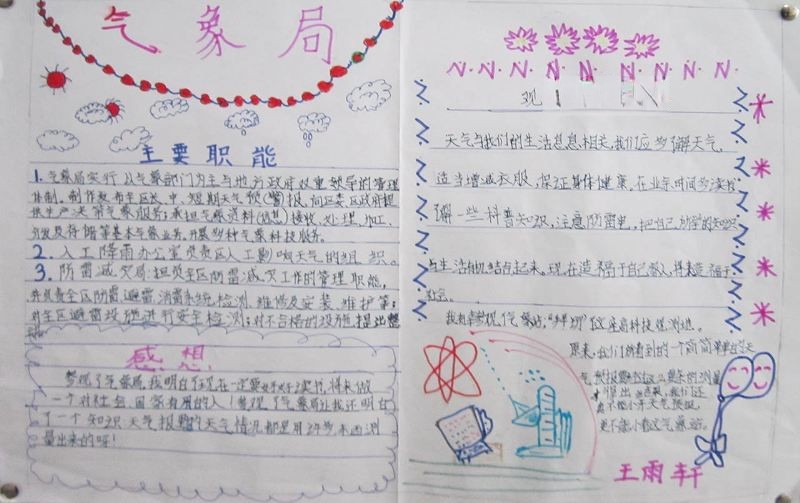 气象局
主要职能
1.气象局实行以气象部门为主与地方政府双重领导的管理
体制。制作发布全区长、中、短期天气预(警)报,向区委区政府提
供生产天气气象服务;承担气象资料(信息)接收、处理、加工、
分发及存储等基本气象业务,开展多种气象科技服务。
2.人工降雨办公室负责区人工影响天气的组织。
3.防雷减灾局:担负全区防雷减灾工作的管理职能,
并负责全区防雷避雷、消雷系统检测、维修及安装维护等;
对全区避雷设施进行安全检测;对不合格的设施提出整
感想
参观了气象局,我明白了现在一定要好好读书,将来做
一个对社会、国家有用的人!参观了气象局让我还明白
了一个知识天气报的天气情况都是用许多东西测
量出来的呀!
观
天气与我们的生活息息相关,我们应多了解天气,
适当增减衣服,保证身体健康,在业余时间多读书
了解一些科普知识,注意防雷电,把自己所学的知识
与生活相结合起来。现在造福于自己家人,将来造福于
社会。
我有幸参观气象站,“拜访”这座高科技观测站。
原来,我们所看到的一个简简单单的天
气预报
不能小
更不能小看这气象站。
王雨轩